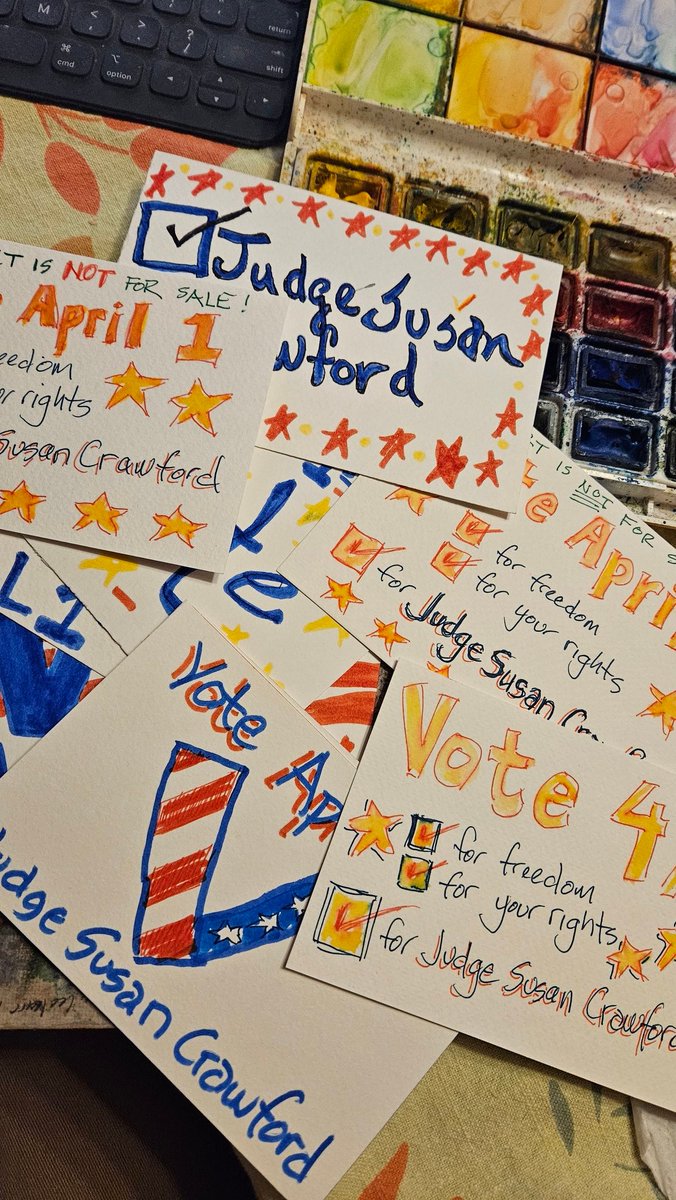 M
<
>
?
/
return
⌘
cmd
option
shift
Judge Susan
wford
T IS NOT FOR SALE!
April 1
eedom
or rights
Susan Crawford
T IS NOT FOR S
e April
for freedom
for your rights
for Judge Susan
L 1
Vote Ap
V
Judge Susan Crawford
Vote 4/
for freedom
for your rights
for Judge Susan Crawford